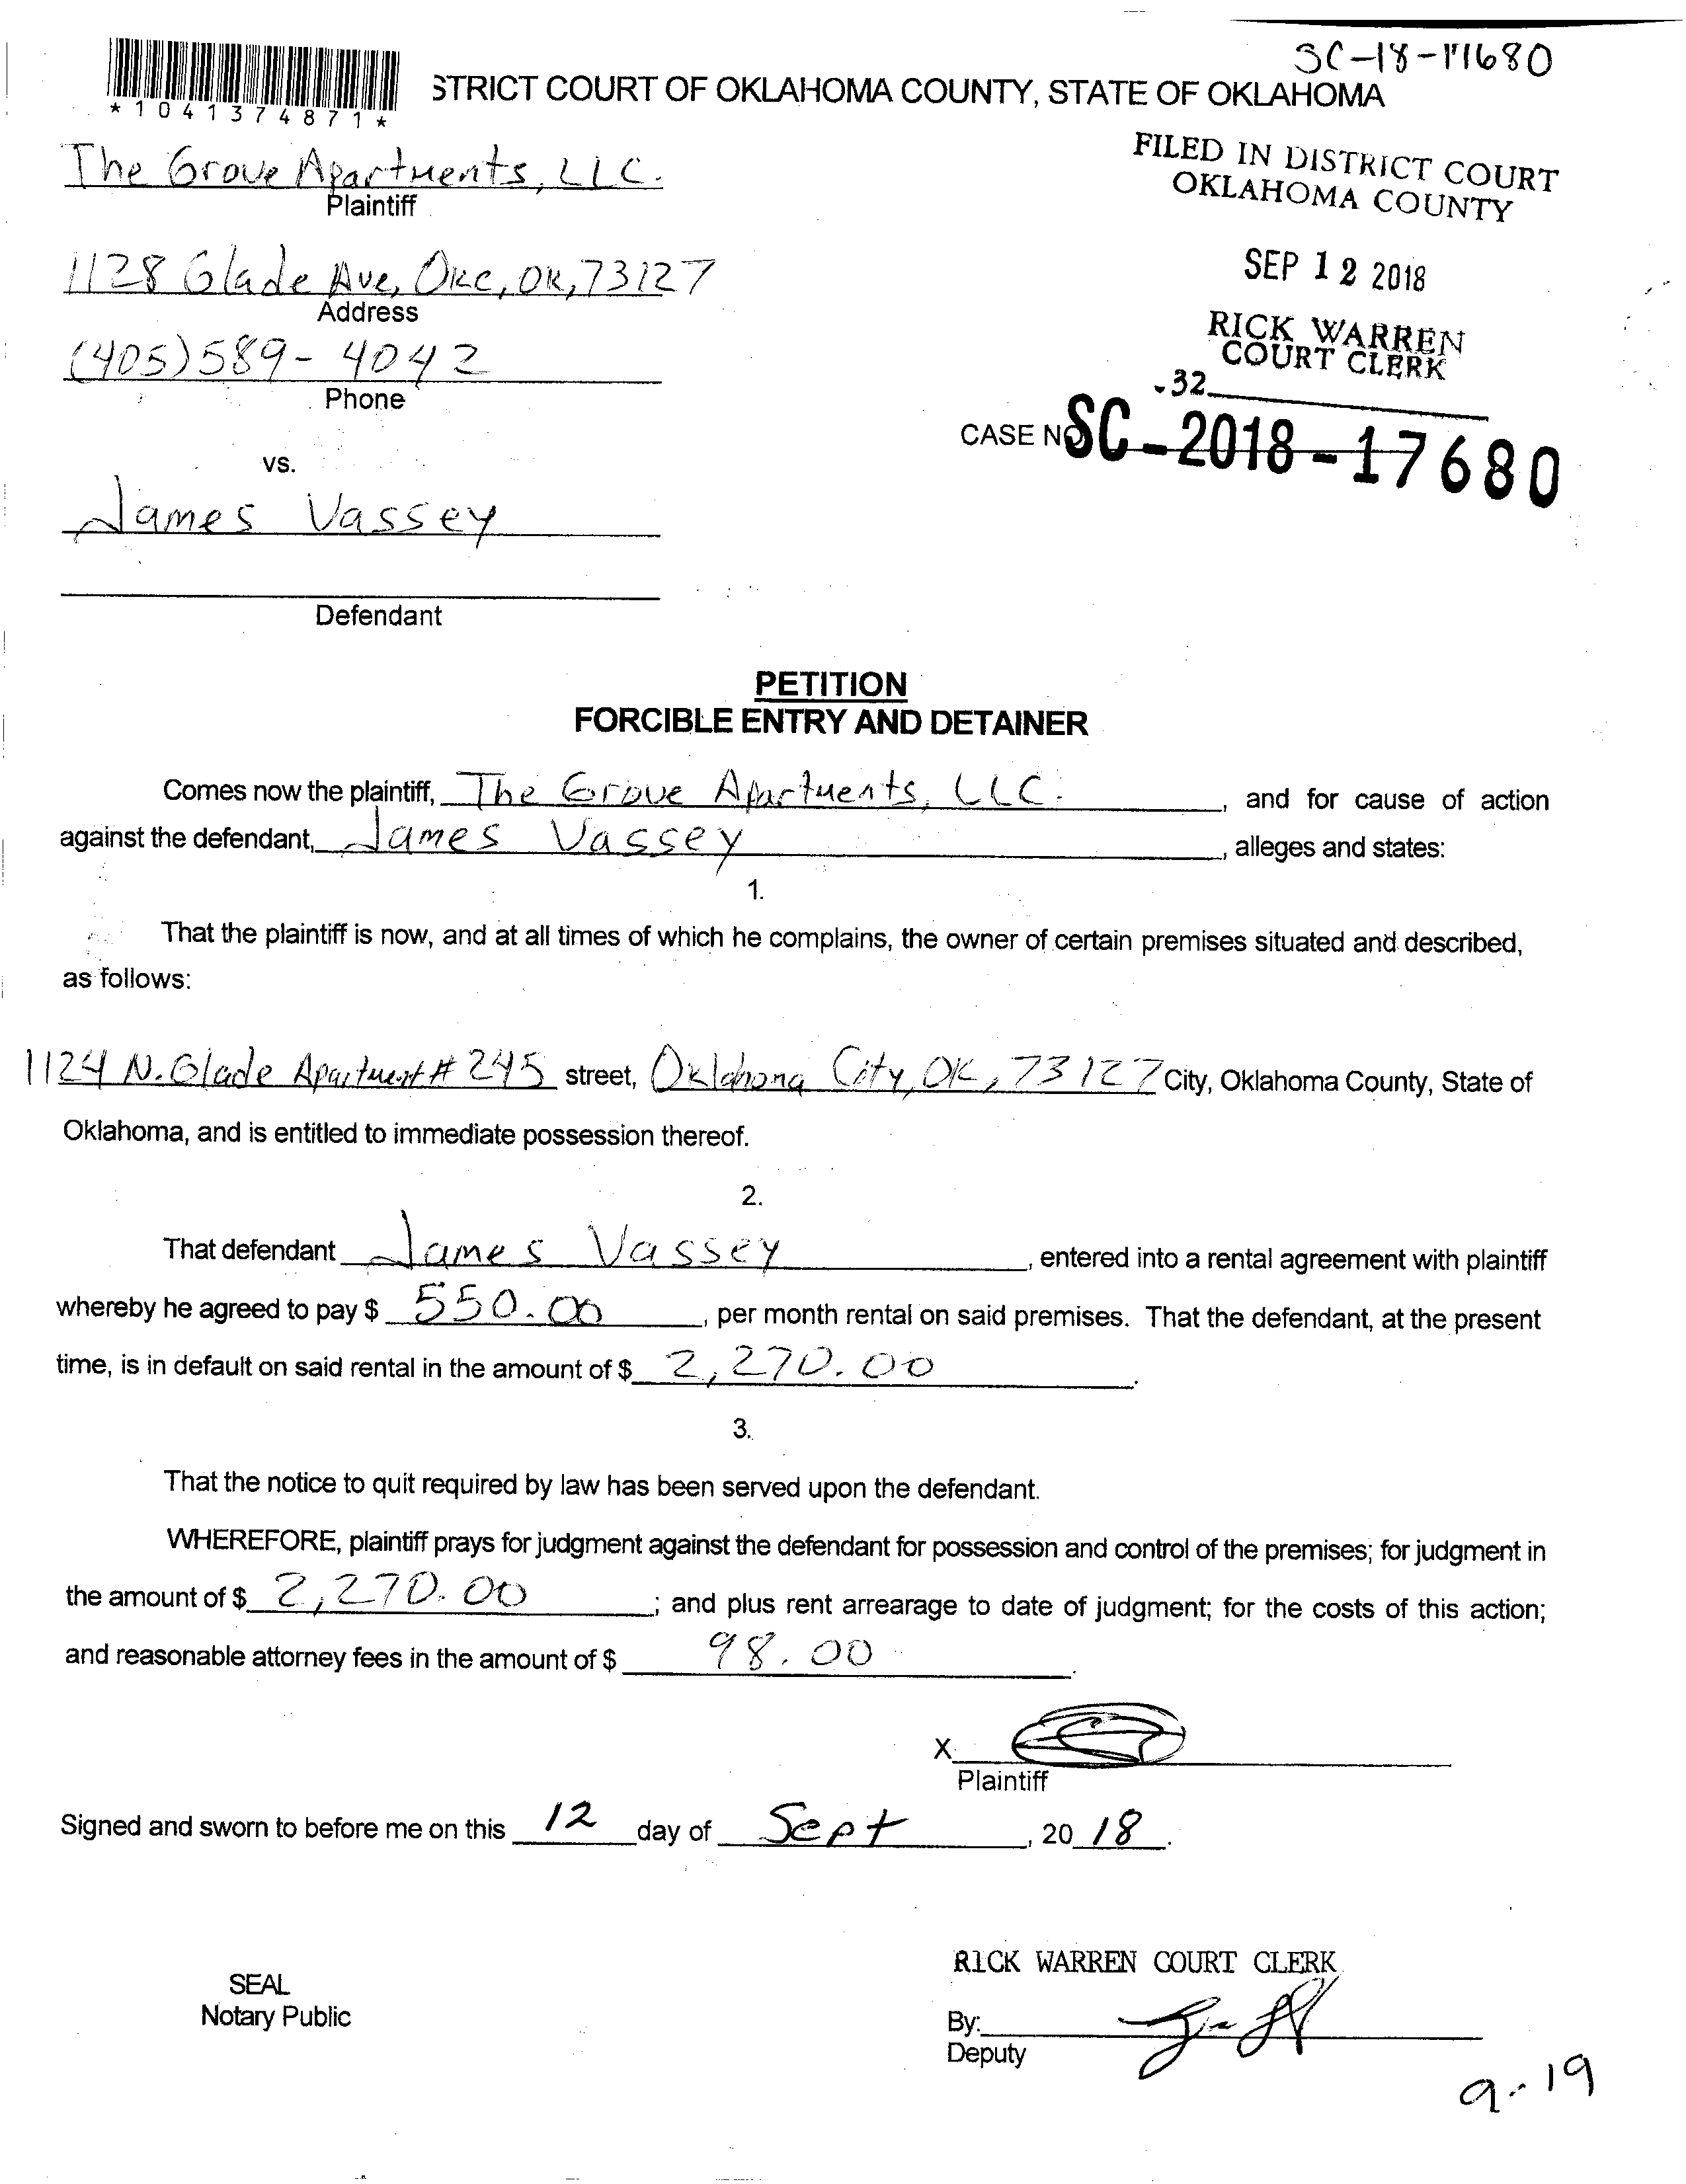 SC-18-17680
*1041374871*
STRICT COURT OF OKLAHOMA COUNTY, STATE OF OKLAHOMA
The Grove Apartments, LLC.
Plaintiff
FILED IN DISTRICT COURT
OKLAHOMA COUNTY
1128 Glade Ave, OKC, OK, 73127
Address
SEP 12 2018
(405) 589-4042
Phone
RICK WARREN
COURT CLERK
-32
CASE NO SC-2018-17680
vs.
James Vassey
Defendant
PETITION
FORCIBLE ENTRY AND DETAINER
Comes now the plaintiff, The Grove Apartments, LLC. , and for cause of action
against the defendant, James Vassey , alleges and states:
1.
That the plaintiff is now, and at all times of which he complains, the owner of certain premises situated and described,
as follows:
1124 N. Glade Apartment # 245 street, Oklahoma City, OK, 73127 City, Oklahoma County, State of
Oklahoma, and is entitled to immediate possession thereof.
2.
That defendant James Vassey , entered into a rental agreement with plaintiff
whereby he agreed to pay $ 550.00 , per month rental on said premises. That the defendant, at the present
time, is in default on said rental in the amount of $ 2,270.00 .
3.
That the notice to quit required by law has been served upon the defendant.
WHEREFORE, plaintiff prays for judgment against the defendant for possession and control of the premises; for judgment in
the amount of $ 2,270.00 ; and plus rent arrearage to date of judgment; for the costs of this action;
and reasonable attorney fees in the amount of $ 98.00 .
X
Plaintiff
Signed and sworn to before me on this 12 day of Sept , 20 18 .
RICK WARREN COURT CLERK
SEAL
Notary Public
By:
Deputy
9-19